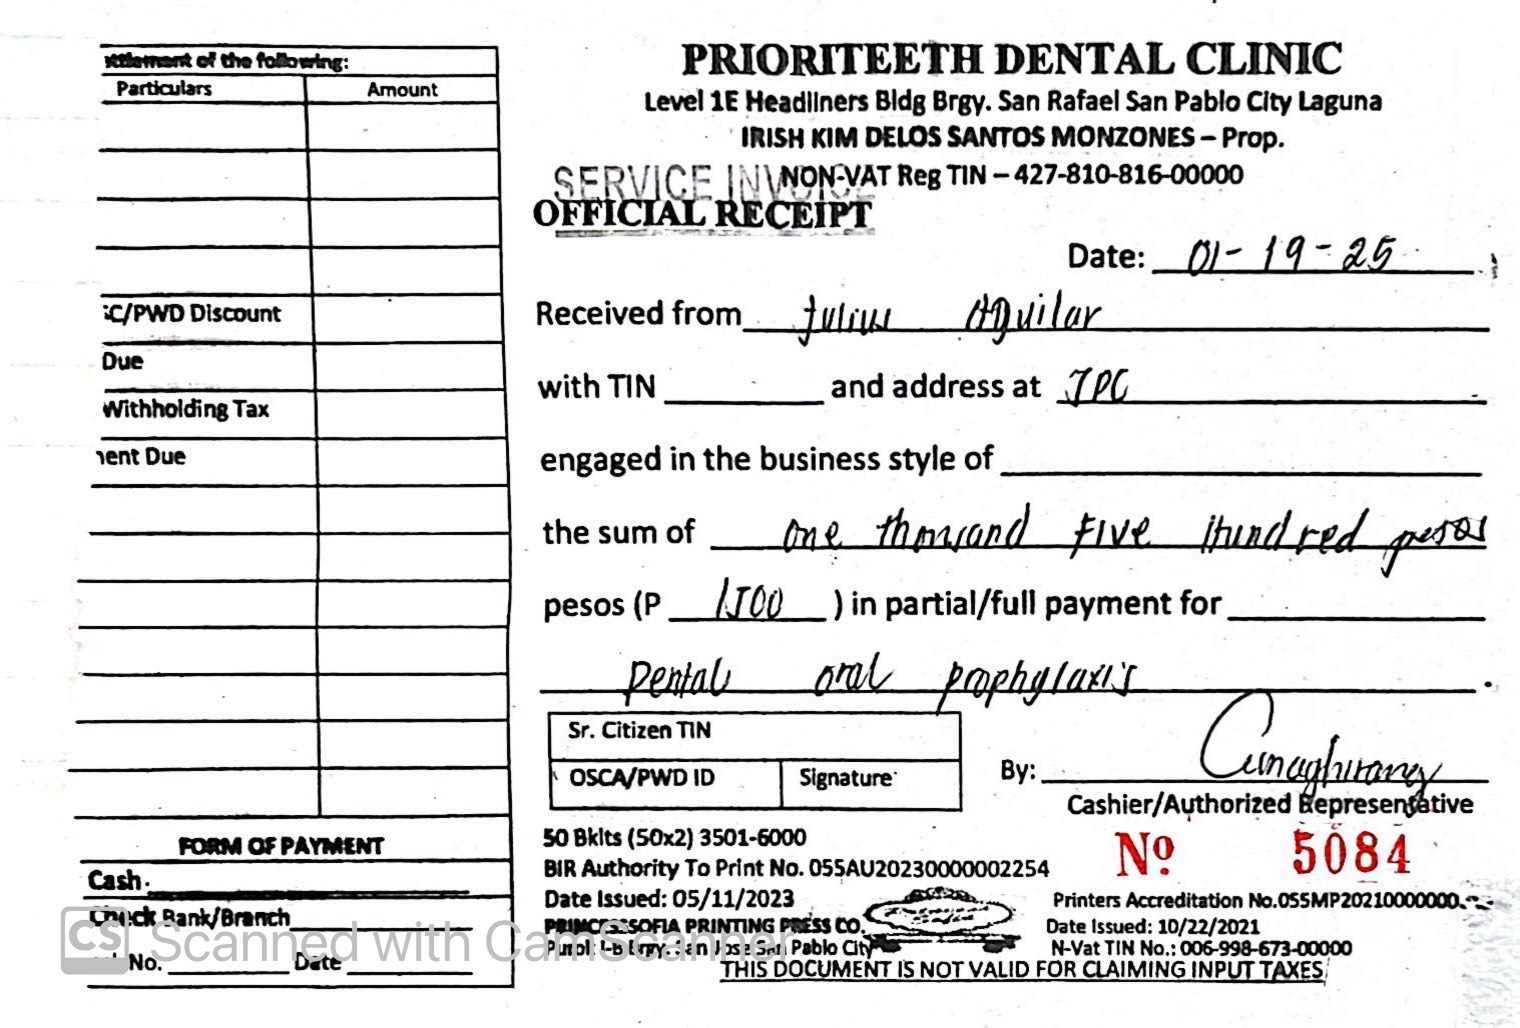 of the following:
Particulars Amount
C/PWD Discount
Due
Withholding Tax
ent Due
FORM OF PAYMENT
Cash
Check Bank/Branch
No. Date
PRIORITEETH DENTAL CLINIC
Level 1E Headliners Bldg Brgy. San Rafael San Pablo City Laguna
IRISH KIM DELOS SANTOS MONZONES – Prop.
NON-VAT Reg TIN – 427-810-816-00000
SERVICE INVOICE
OFFICIAL RECEIPT
Date: 01-19-25
Received from Julius Aguilar
with TIN and address at
engaged in the business style of
the sum of one thousand Five Hundred pesos
pesos (P 1500 ) in partial/full payment for
Dental oral prophylaxis
Sr. Citizen TIN
OSCA/PWD ID Signature
By:
Cashier/Authorized Representative
Nº 5084
50 Bklts (50x2) 3501-6000
BIR Authority To Print No. 055AU20230000002254
Date Issued: 05/11/2023
PRINCESSSOFIA PRINTING PRESS CO.
Purok I-B Brgy. San Jose San Pablo City
Printers Accreditation No.055MP20210000000
Date Issued: 10/22/2021
N-Vat TIN No.: 006-998-673-00000
THIS DOCUMENT IS NOT VALID FOR CLAIMING INPUT TAXES
CS Scanned with CamScanner